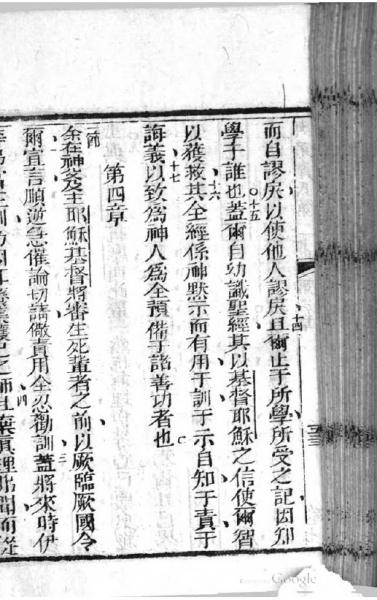 而自謬戾以使他人謬戾且爾止于所學所受之記因知
學于誰也蓋爾自幼識聖經其以基督耶穌之信使爾智
以獲救其全經係神黙示而有用于訓于示自知于責于
誨義以致為神人為全預備于諸善功者也
第四章
余在神及主耶穌基督將審生死輩者之前以厥臨厥國令
爾宣言順逆急催論切請儆責用全忍勸訓蓋將來時伊
Google